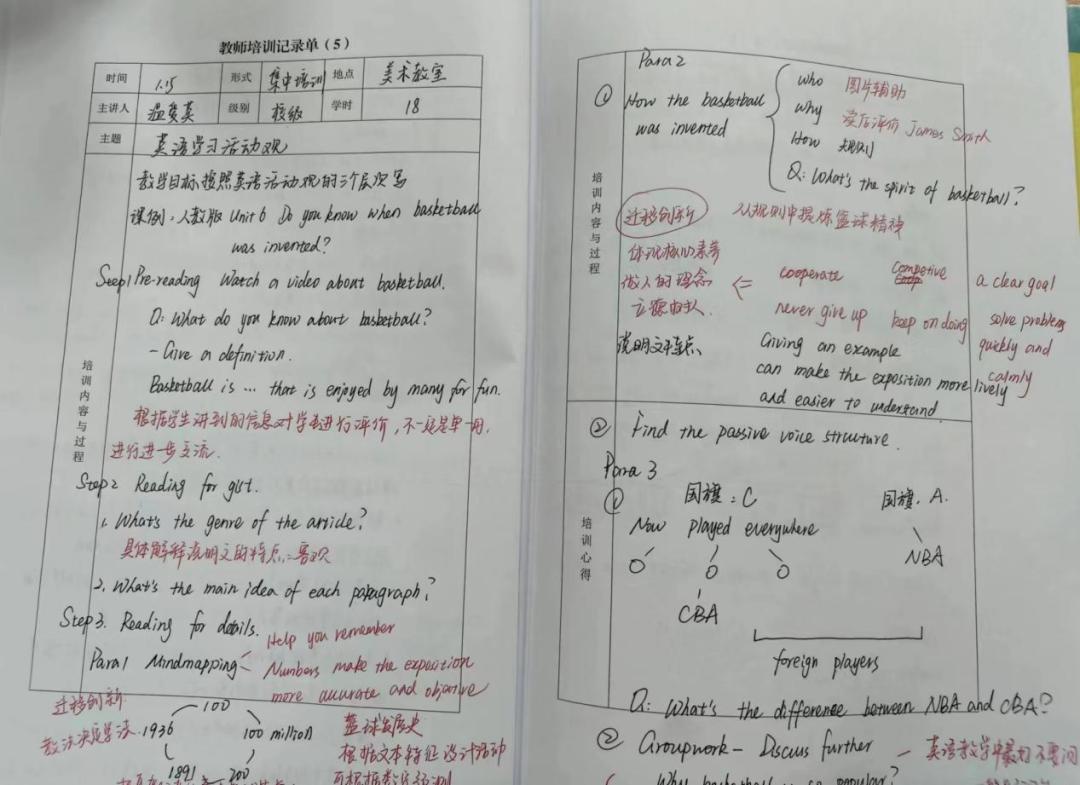 教师培训记录单（5）
时间 1.15 形式 集中培训 地点 美术教室
主讲人 温 英 级别 校级 学时 18
主题 英语学习活动观
培训内容与过程
教学目标按照英语活动观的三个层次写
课例：人教版 Unit 6 Do you know when basketball
was invented?
Step1 Pre-reading Watch a video about basketball.
Q: What do you know about basketball?
- Give a definition.
Basketball is ... that is enjoyed by many for fun.
根据学生讲到的信息对学生进行评价，不一定是单一用，
进行进一步交流.
Step2 Reading for gist.
1. What's the genre of the article?
具体解释说明文的特点：客观
2. What's the main idea of each paragraph?
Step3. Reading for details.
Help you remember
Para1 Mindmapping
Numbers make the exposition
more accurate and objective
迁移创新
教法决定学法
100
1936
100 million
1891
200
篮球发展史
根据文本特征设计活动
可根据数字预测
培训内容与过程
Para2
① How the basketball
was invented
who 图片辅助
why 读后评价 James Smith
How 规则
Q: What's the spirit of basketball?
迁移创新 从规则中提炼篮球精神
体现核心素养
做人的理念
立德树人.
<= cooperate Competive a clear goal
never give up keep on doing solve problem
quickly and
calmly
说明文特点
Giving an example
can make the exposition more lively
and easier to understand
② Find the passive voice structure.
培训心得
Para 3
① 国旗：C 国旗. A.
Now played everywhere
NBA
CBA
foreign players
Q: What's the difference between NBA and CBA?
② Groupwork - Discuss further
- 英语教学中最
Why basketball so popular?